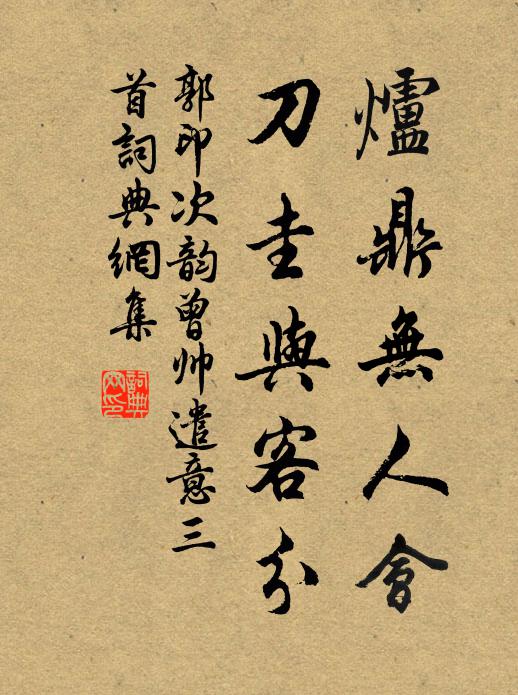 爐鼎無人會
刀圭與客分
郭印次韵曾帅遣意三
首詞典網集
詞典
网印